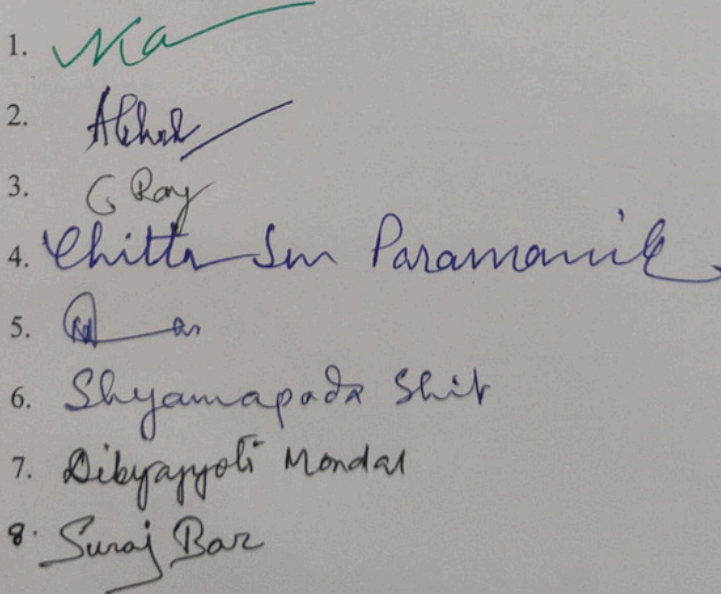 1.
2.
3. G Ray
4. Chitta Sen Paramanik
5.
6. Shyamapada Shit
7. Dibyajyoti Mondal
8. Suraj Bar